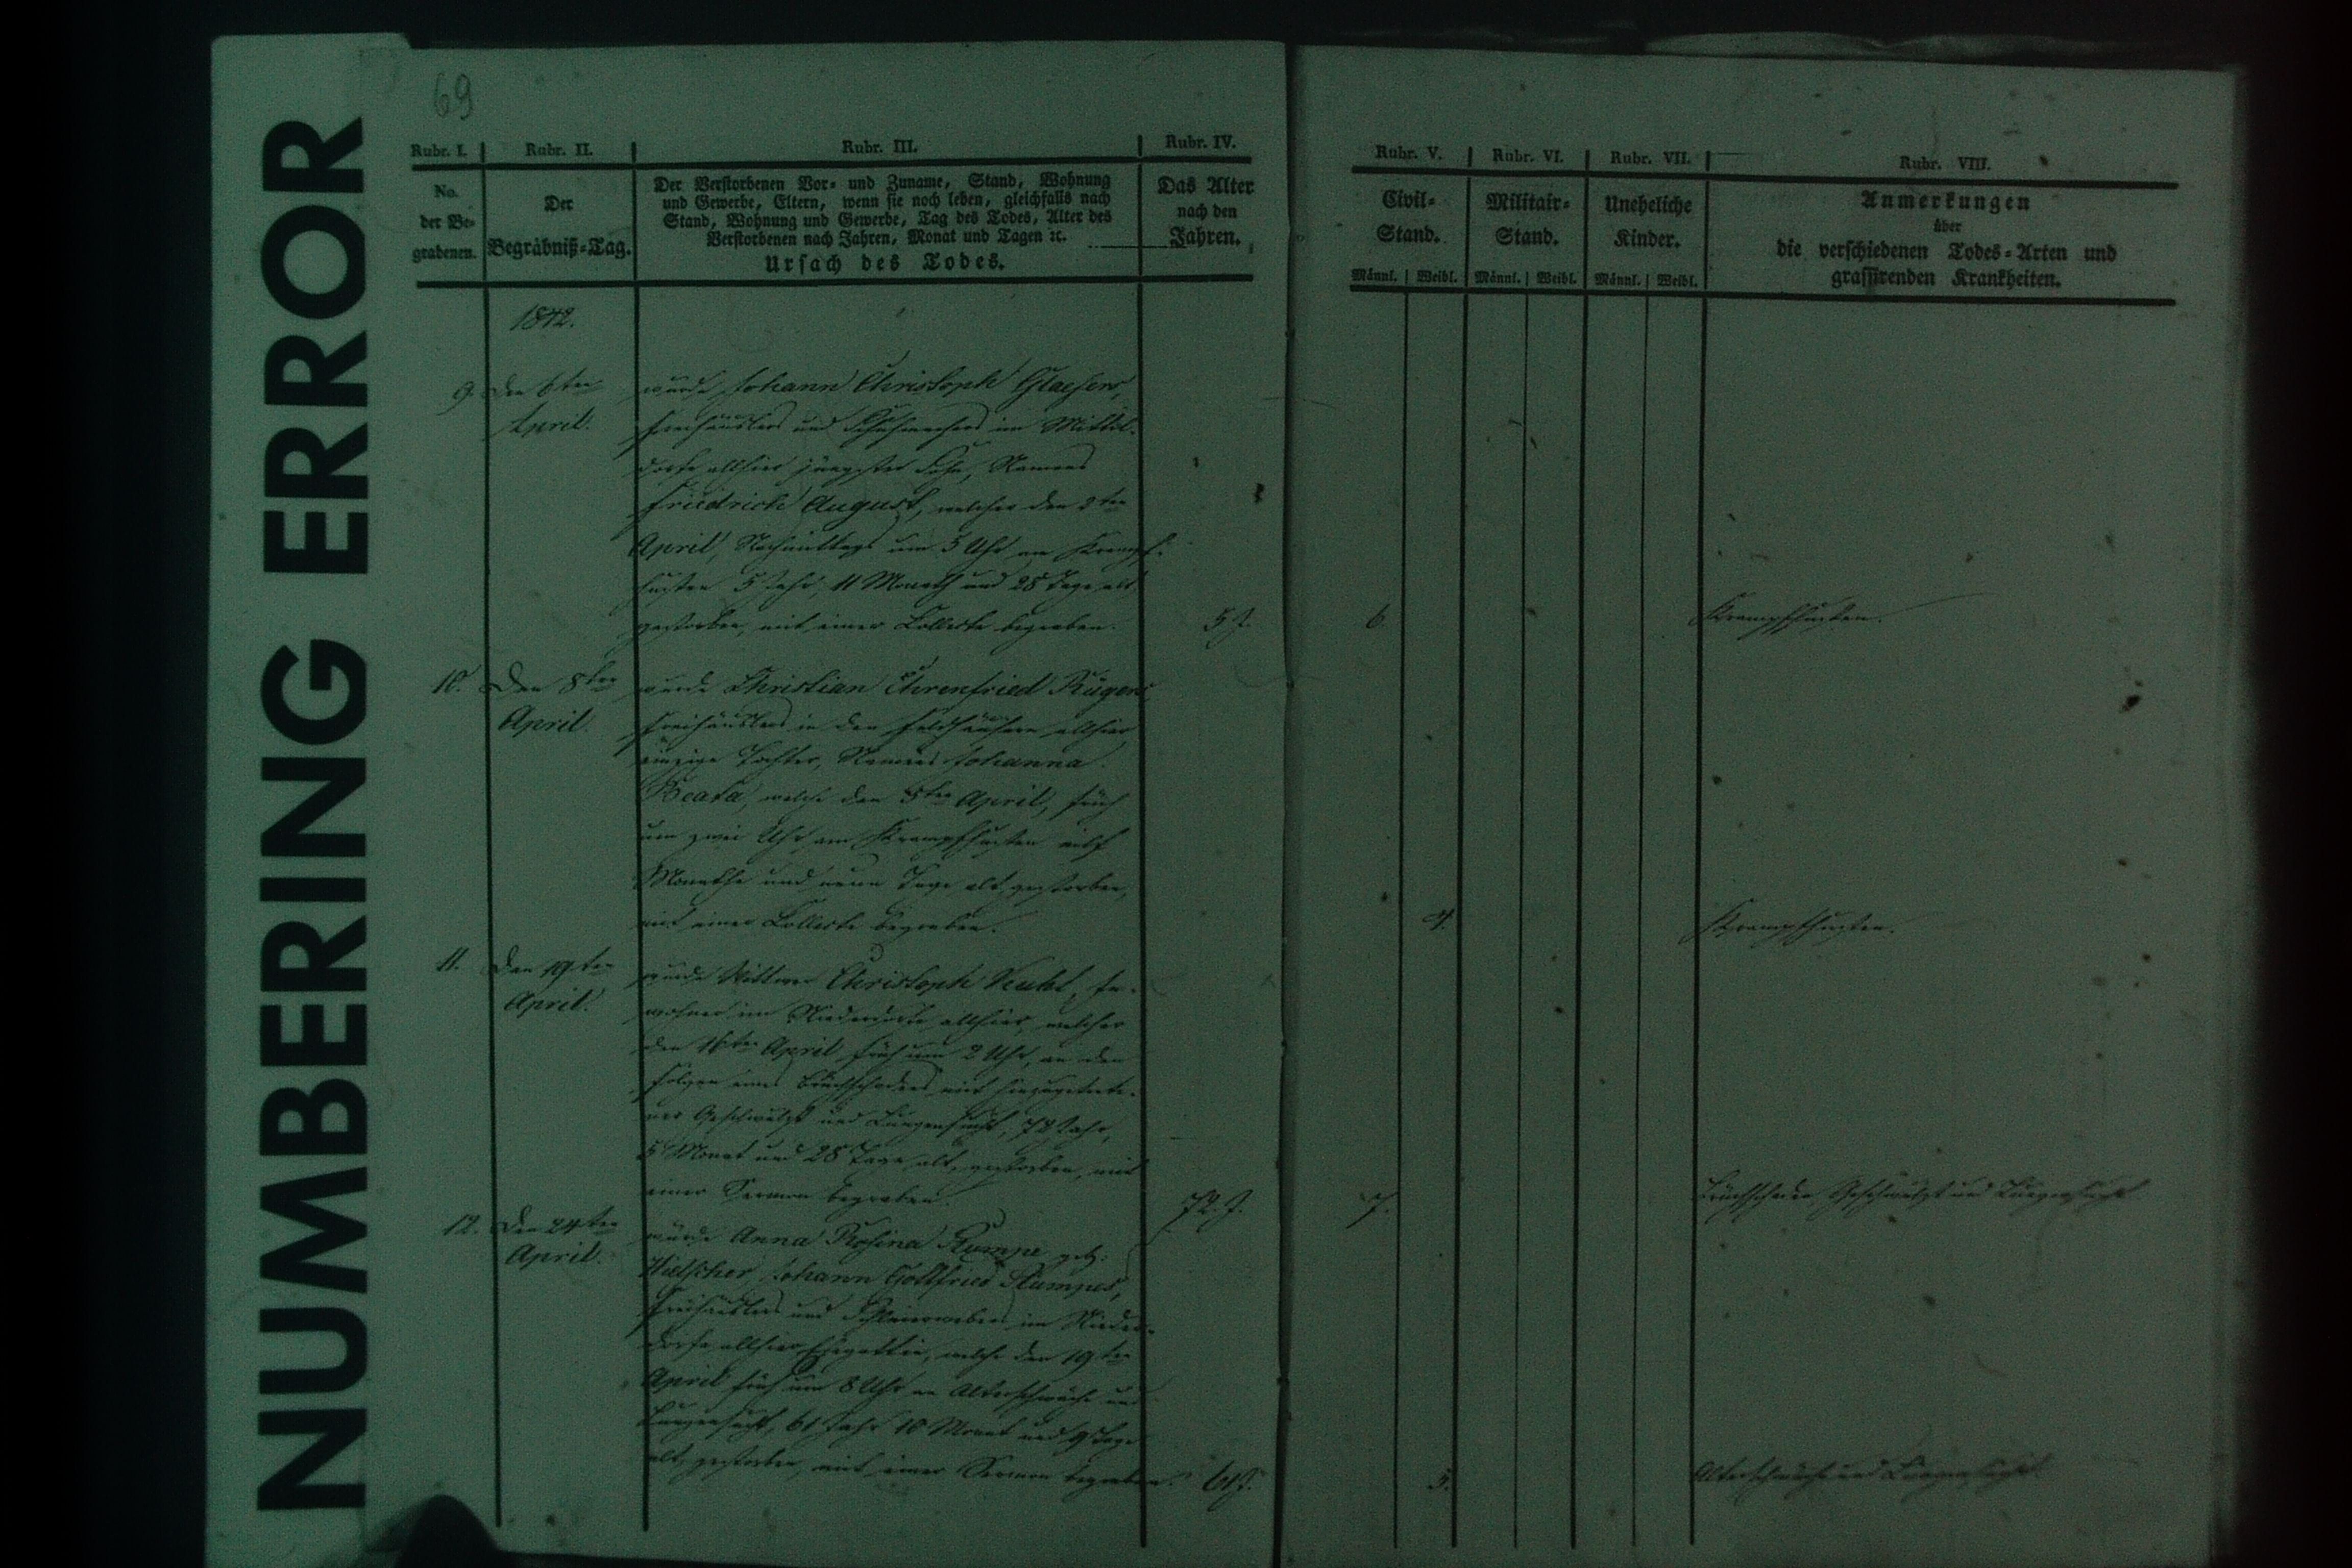 NUMBERING ERROR
69
Rubr. I. Rubr. II. Rubr. III. Rubr. IV. Rubr. V. Rubr. VI. Rubr. VII. Rubr. VIII.
No.
der Be-
grabenen.
Der
Begräbniß=Tag.
Der Verstorbenen Vor= und Zuname, Stand, Wohnung
und Gewerbe, Eltern, wenn sie noch leben, gleichfalls nach
Stand, Wohnung und Gewerbe, Tag des Todes, Alter des
Verstorbenen nach Jahren, Monat und Tagen ꝛc.
Ursach des Todes.
Das Alter
nach den
Jahren.
Civil=
Stand.
Männl. Weibl.
Militair=
Stand.
Männl. Weibl.
Uneheliche
Kinder.
Männl. Weibl.
Anmerkungen
über
die verschiedenen Todes=Arten und
grassirenden Krankheiten.
1842.
9. Den 6ten
April.
wurde Johann Christoph Glaesers,
Freihäuslers und Schuhmachers im Mittel-
dorfe allhier jüngster Sohn, Namens
Friedrich August, welcher den
April, Nachmittags um 5 Uhr am Krampf-
husten 5 Jahr, 11 Monath und 28 Tage alt
gestorben, mit einer Collecte begraben.
5 J. 6. Krampfhusten.
10. Den 8ten
April.
wurde Christian Ehrenfried
Freihäuslers in den Feldhäusern allhier
einzige Tochter, Namens Johanna
Beata, welche den 5ten April, früh
um zwei Uhr am Krampfhusten eilf
Monathe und neun Tage alt, gestorben,
mit einer Collecte begraben.
4. Krampfhusten.
11. Den 19ten
April.
wurde Wittwer Christoph In-
wohner im Niederdorfe allhier, welcher
den 16ten April früh um 2 Uhr, an den
Folgen eines Bruchschadens mit hinzugetrete-
ner Geschwulst und Lungensucht, 72 Jahr,
5 Monat und 28 Tage alt, gestorben, mit
einer Sermon begraben.
72. J. 7. Bruchschaden, Geschwulst und Lungensucht
12. Den 24ten
April.
wurde Anna Rosina geb.
Hielscher, Johann Gottfried
Freihäuslers und im Nieder-
dorfe allhier Ehegattin, welche den 19ten
April früh um 8 Uhr an Altersschwäche und
Lungensucht, 61 Jahr 10 Monat und 9 Tage
alt, gestorben, mit einer Sermon begraben.
61 J. 5. Altersschwäche und Lungensucht